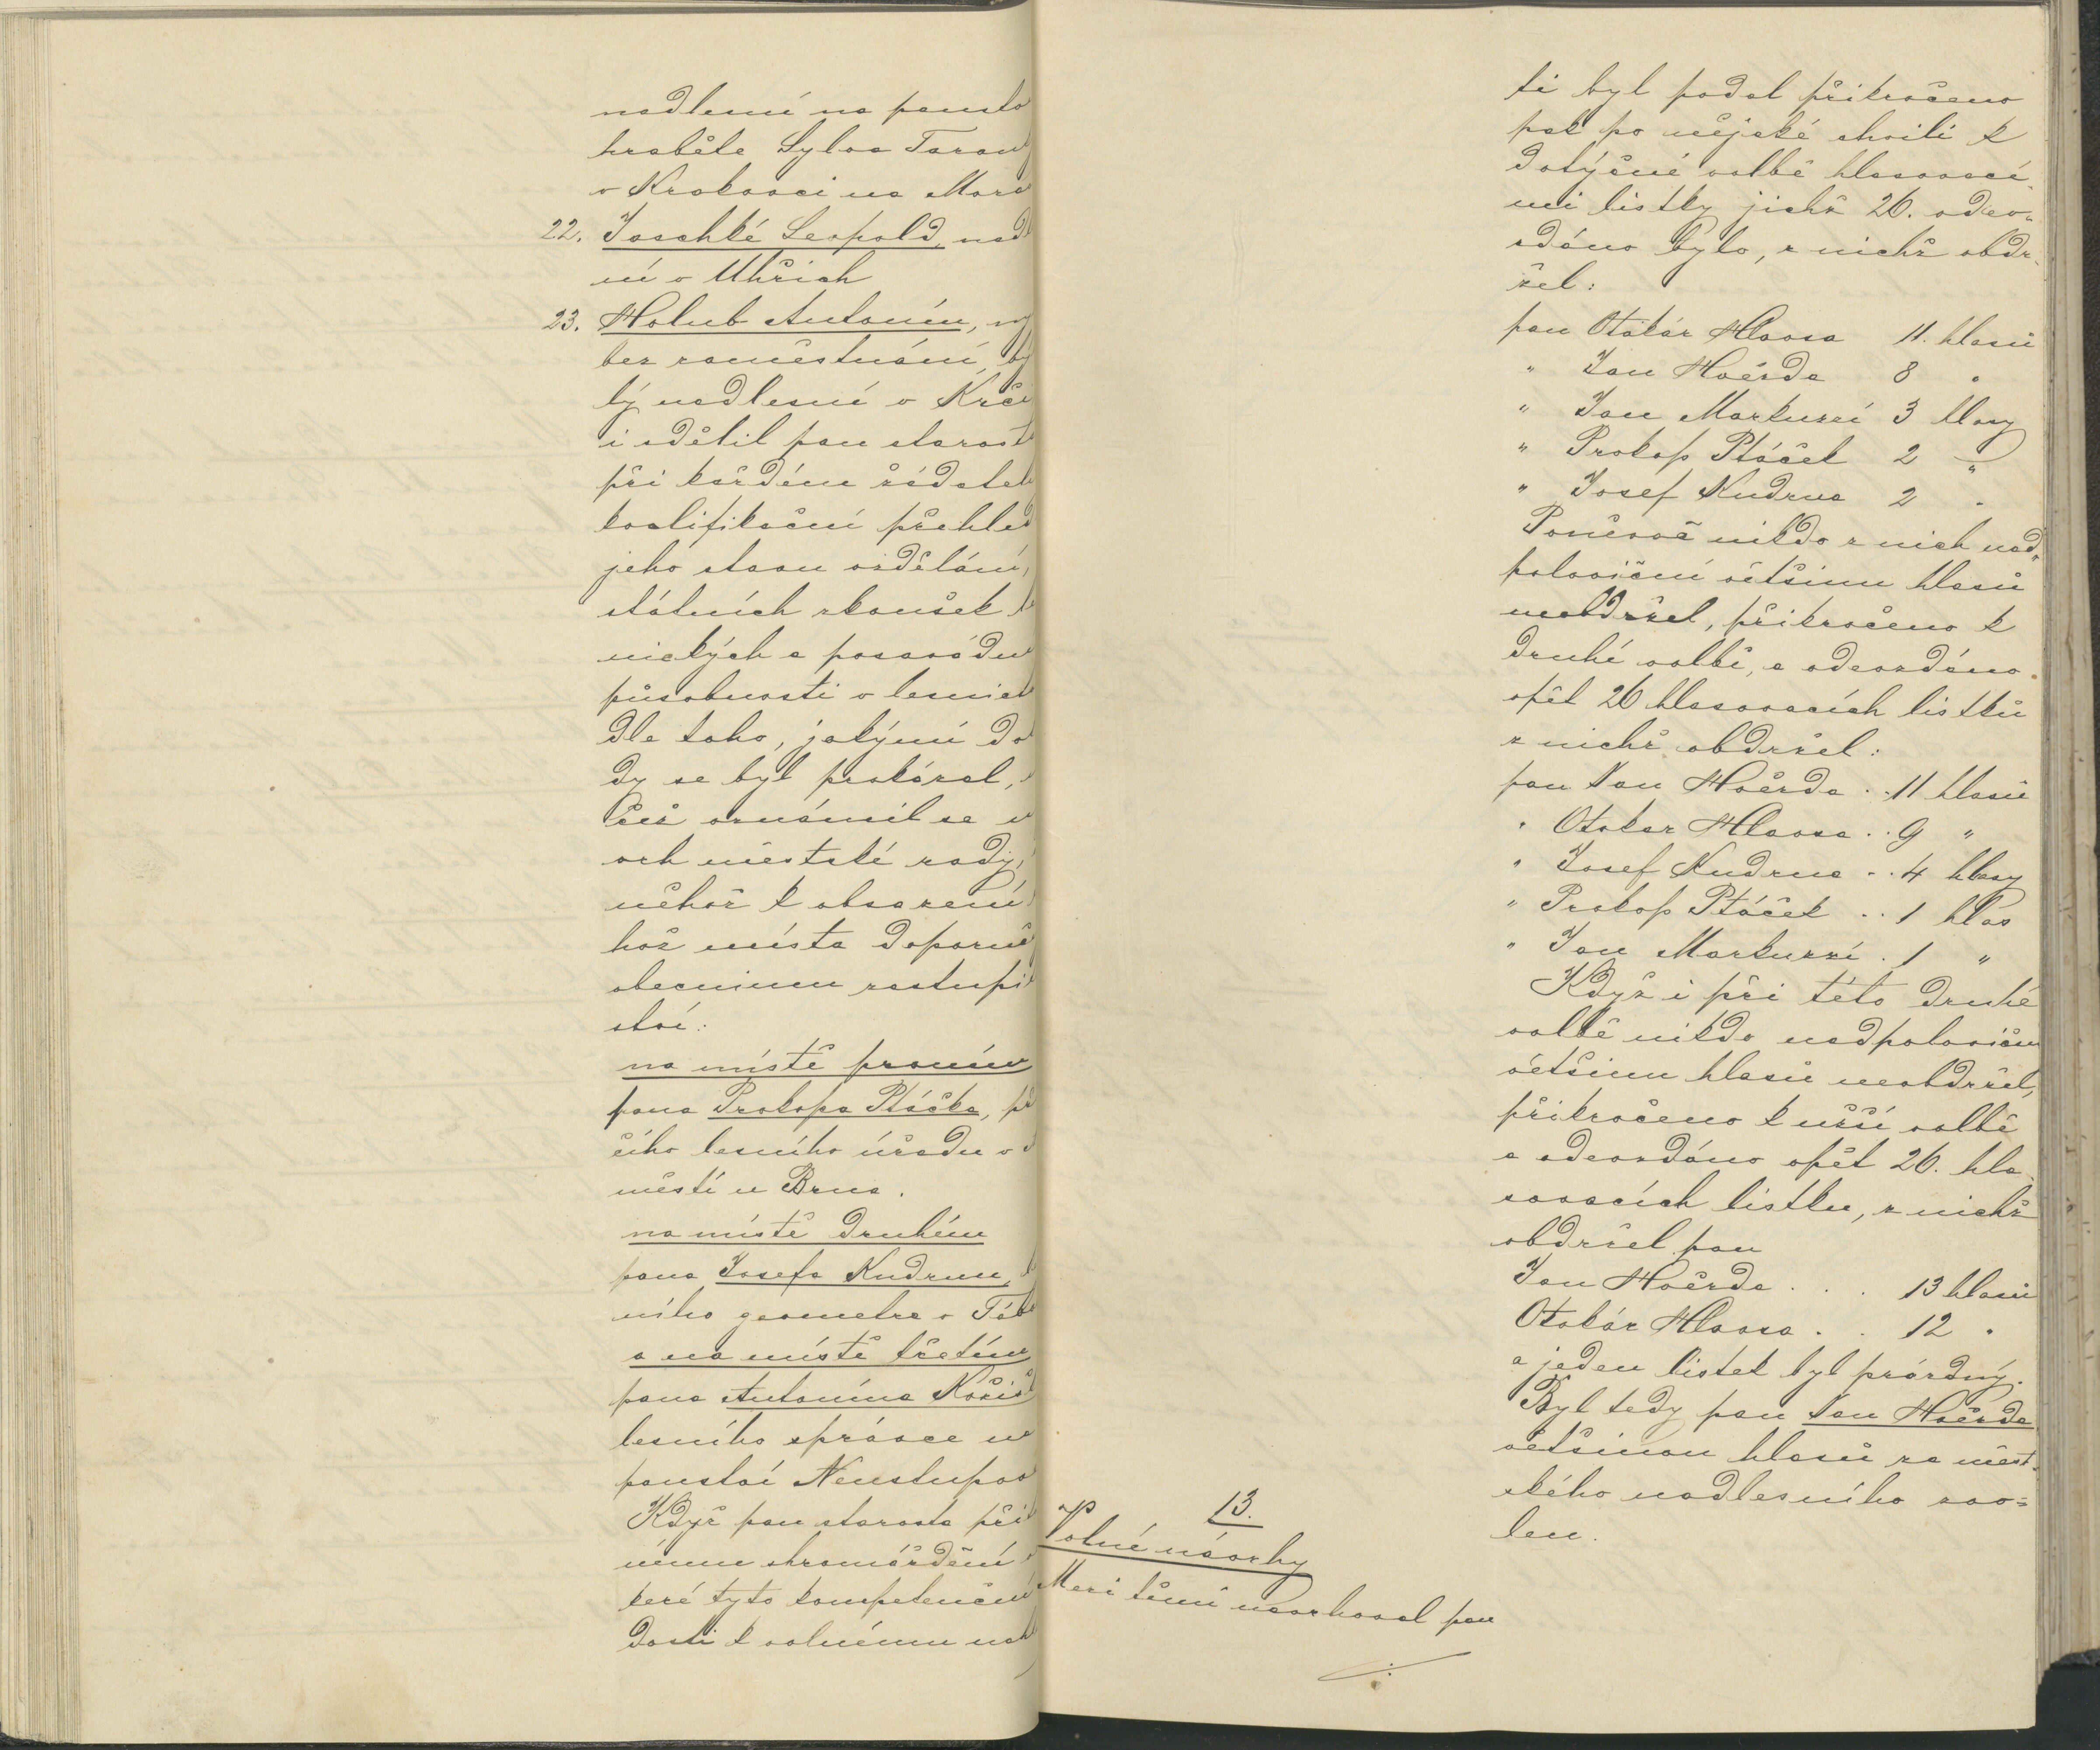 nadlesní na panstv
hraběte Sylva Tarouc
v Krakovci na Mora
22. Jaschké Leopold, nadl
ní v Uhřích
23. Holub Antonín, ny
bez zaměstnání, by
lý nadlesní v Krči
i sdělil pan starost
při každém žádatel
kvalifikační přehled
jeho stavu vzdělání,
státních zkoušek le
nických a posavádn
působnosti v lesnict
dle toho, jakými do
dy se byl prokázal,
čež oznámil se
vrh městské rady,
něhož k obsazení
hož místa doporuč
obecnímu zastupi
ství:
na místě prvním
pana Prokopa Ptáčka, př
čího lesního úřadu v
městí u Brna.
na místě druhém
pana Josefa Kudrnu, l
ního geometra v Táb
a na místě třetím
pana Antonína Kořis
lesního správce n
panství Neustupov
Když pan starosta při
nému shromáždění
keré tyto kompetenční
dosti k volnému nah
ti byl podal přikročeno
pak po nějaké chvíli k
dotyčné volbě hlasovací-
mi lístky jichž 26. odev-
zdáno bylo, z nichž obdr-
žel:
pan Otakár Hlavsa 11. hlasů
" Jan Hvězda 8 "
" Jan Markuzzi 3 hlasy
" Prokop Ptáček 2 "
" Josef Kudrna 2 "
Poněvač nikdo z nich nad-
poloviční většinu hlasů
neobdržel, přikročeno k
druhé volbě, a odevzdáno
opět 26 hlasovacích lístků
z nichž obdržel:
pan Jan Hvězda .. 11 hlasů
" Otakar Hlavsa .. 9 "
" Josef Kudrna .. 4 hlasy
" Prokop Ptáček .. 1 hlas
" Jan Markuzzi . 1 "
Když i při této druhé
volbě nikdo nadpoloviční
většinu hlasů neobdržel,
přikročeno k užší volbě
a odevzdáno opět 26. hla-
sovacích lístku, z nichž
obdržel pan
Jan Hvězda . . . 13 hlasů
Otakár Hlavsa . . 12 "
a jeden lístek byl prázdný.
Byl tedy pan Jan Hvězda
většinou hlasů za měst-
ského nadlesního zvo=
len.
13.
Volné návrhy
Mezi těmi navrhoval pan